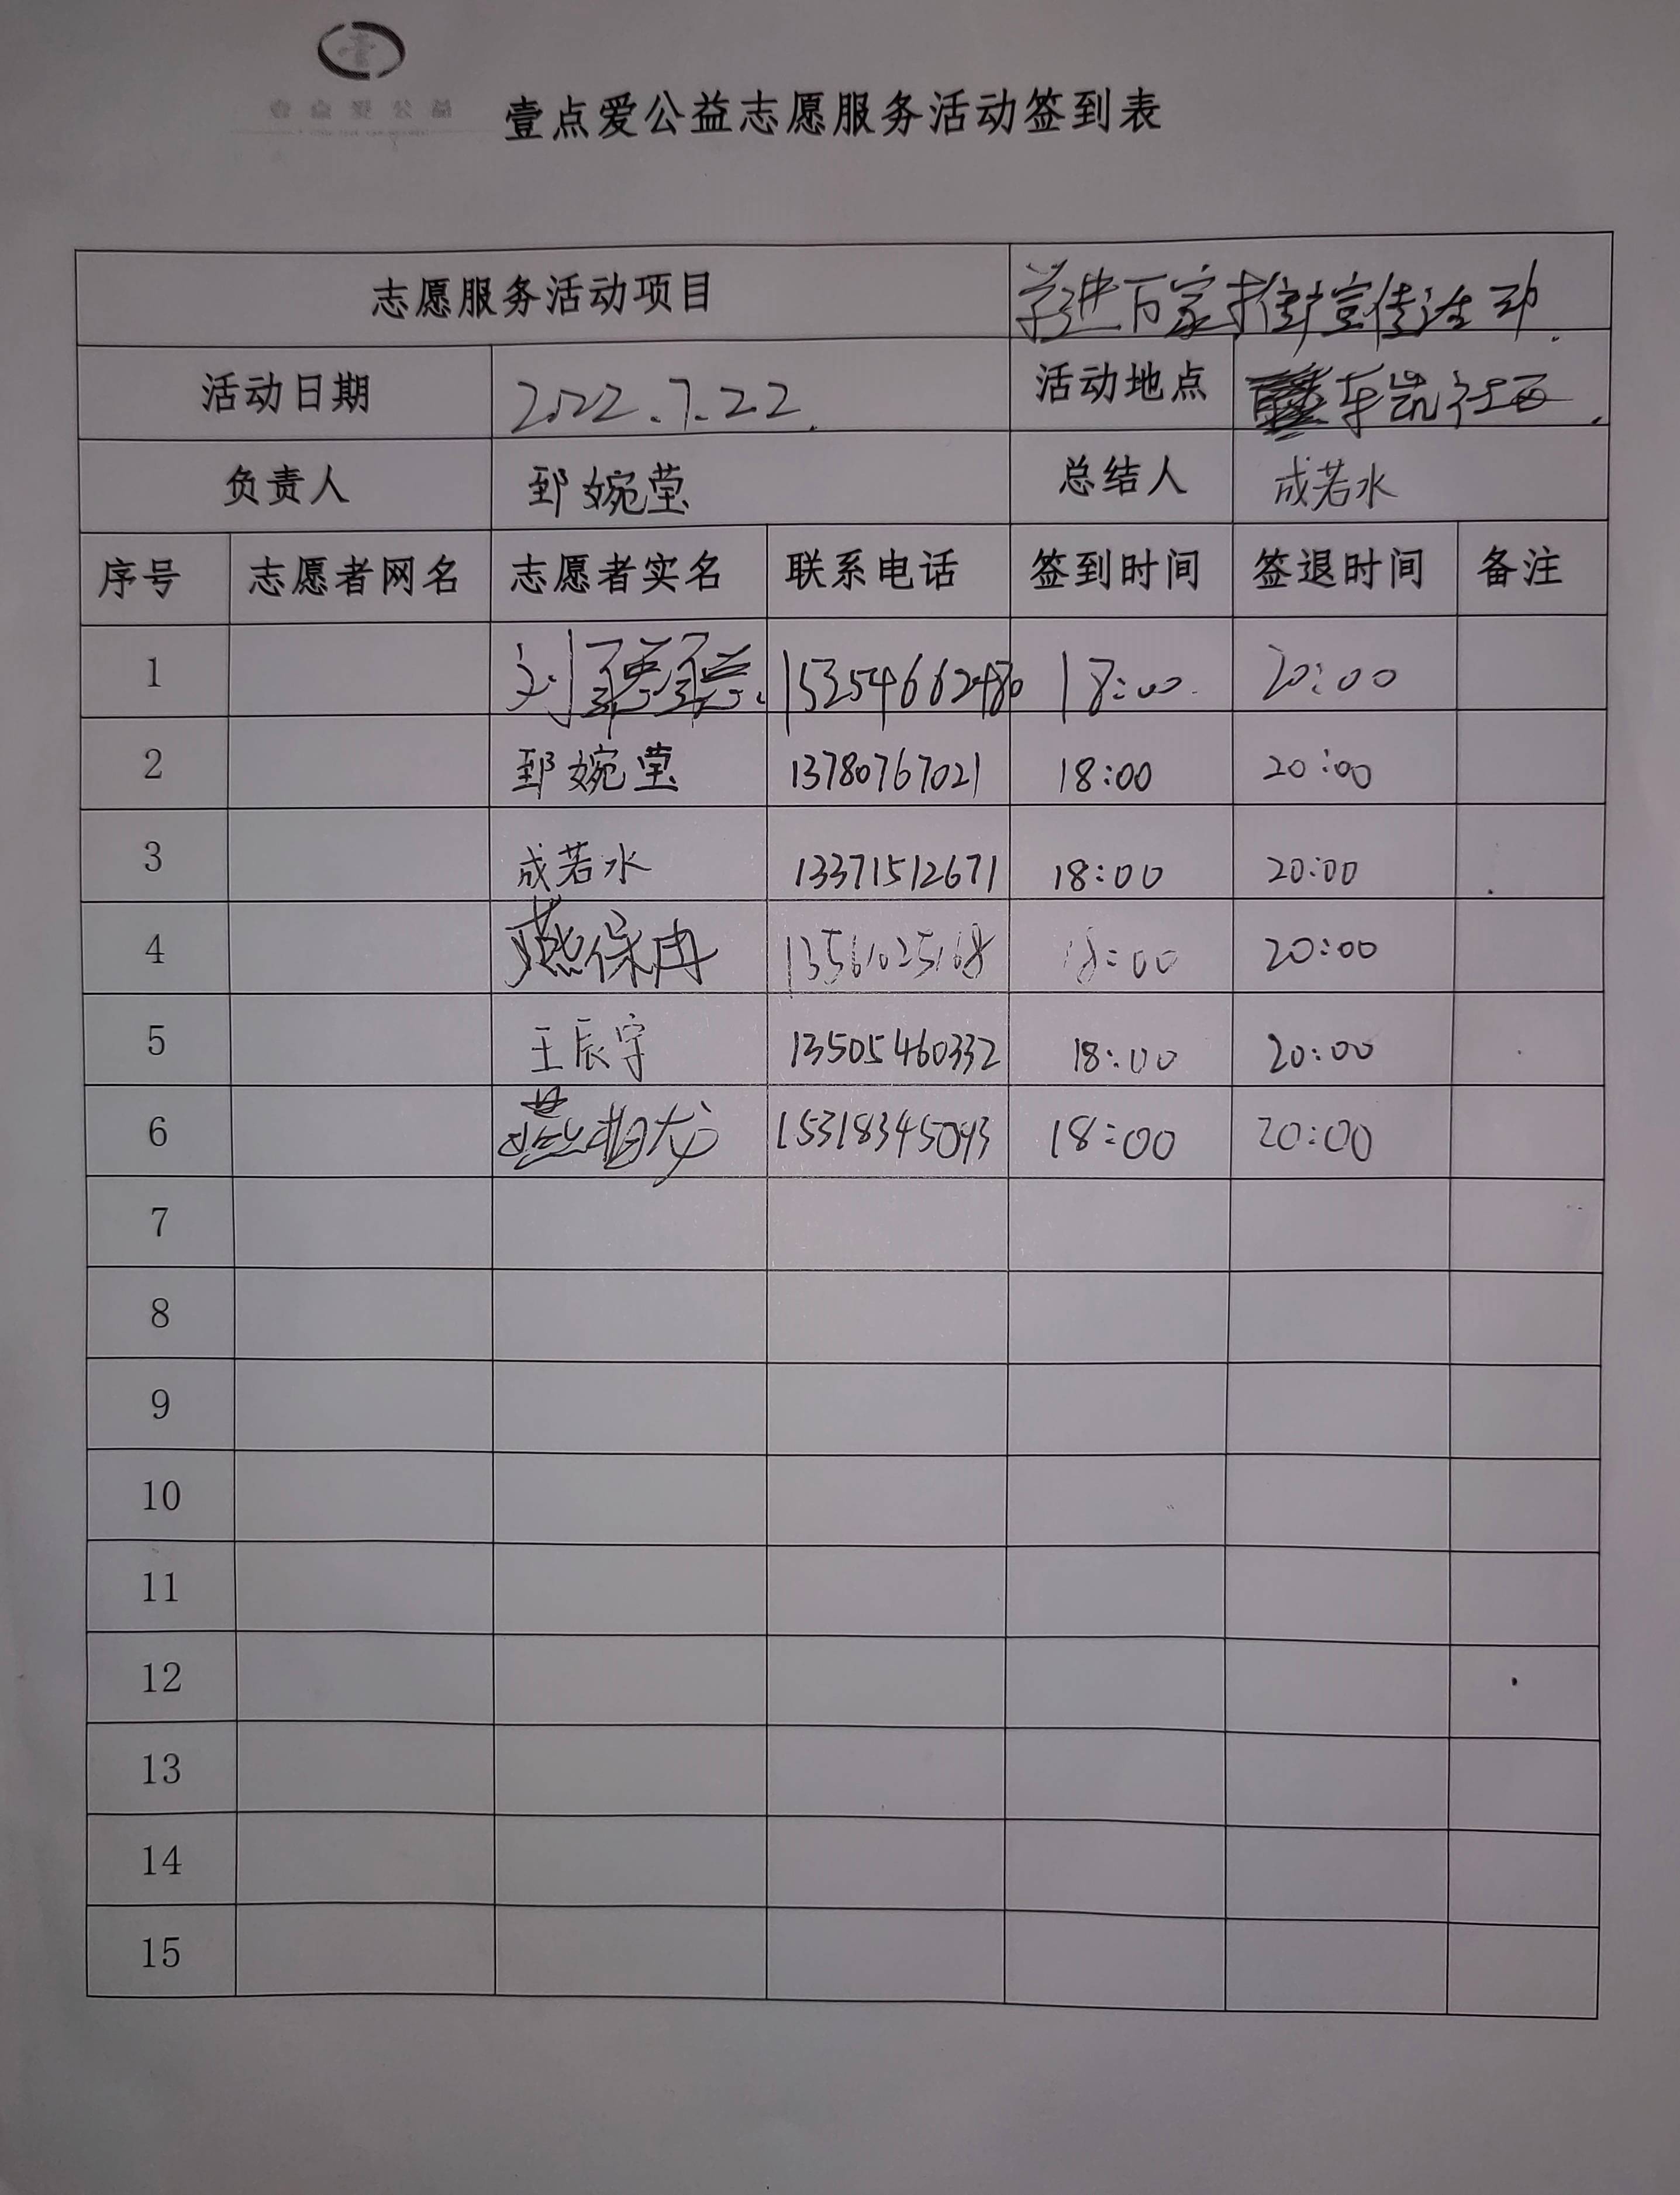 壹点爱公益
壹点爱公益志愿服务活动签到表
志愿服务活动项目 进万家 宣传活动.
活动日期 2022.7.22. 活动地点 东凯社区.
负责人 郅婉莹 总结人 成若水
序号 志愿者网名 志愿者实名 联系电话 签到时间 签退时间 备注
1 刘 15254662480 18:00. 20:00
2 郅婉莹 13780767021 18:00 20:00
3 成若水 13371512671 18:00 20:00
4 燕保冉 13561025168 18:00 20:00
5 王辰宇 13505460332 18:00 20:00
6 15318345093 18:00 20:00
7
8
9
10
11
12
13
14
15